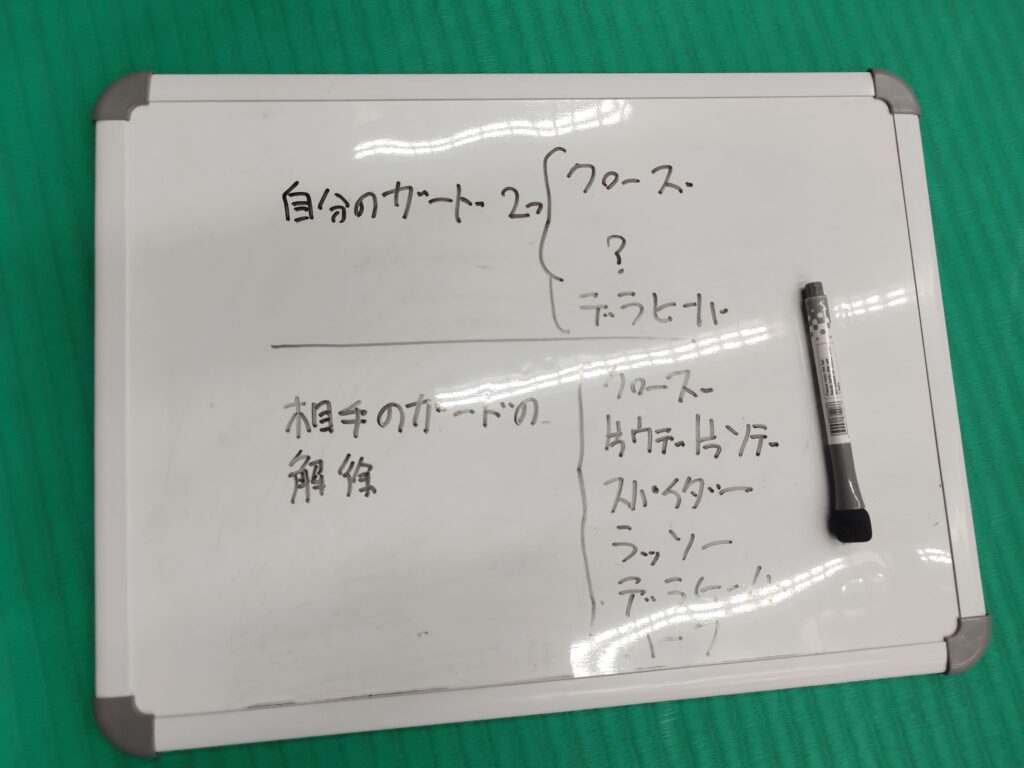 自分のガード 2つ
クローズ
?
デラヒール
相手のガードの
解除
クローズ
片ウデ片ソデ
スパイダー
ラッソー
デラヒール